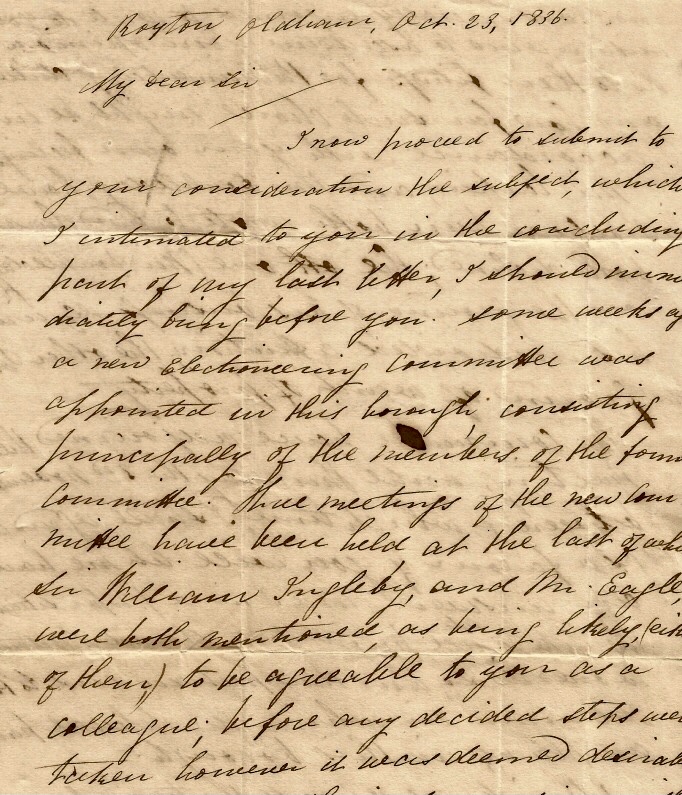 Royton, Oldham, Oct. 23, 1836.
My Dear Sir
I now proceed to submit to
your consideration the subject, which
I intimated to you in the concluding
part of my last letter, I should imme
diately bring before you. Some weeks ag
a new Electioneering Committee was
appointed in this borough, consisting
principally of the members of the form
Committee. Three meetings of the new Com
mittee have been held, at the last of whi
Sir William Ingleby, and Mr. Eagle,
were both mentioned, as being likely, (eith
of them,) to be agreeable to you as a
colleague; before any decided steps wer
taken however it was deemed desirabl